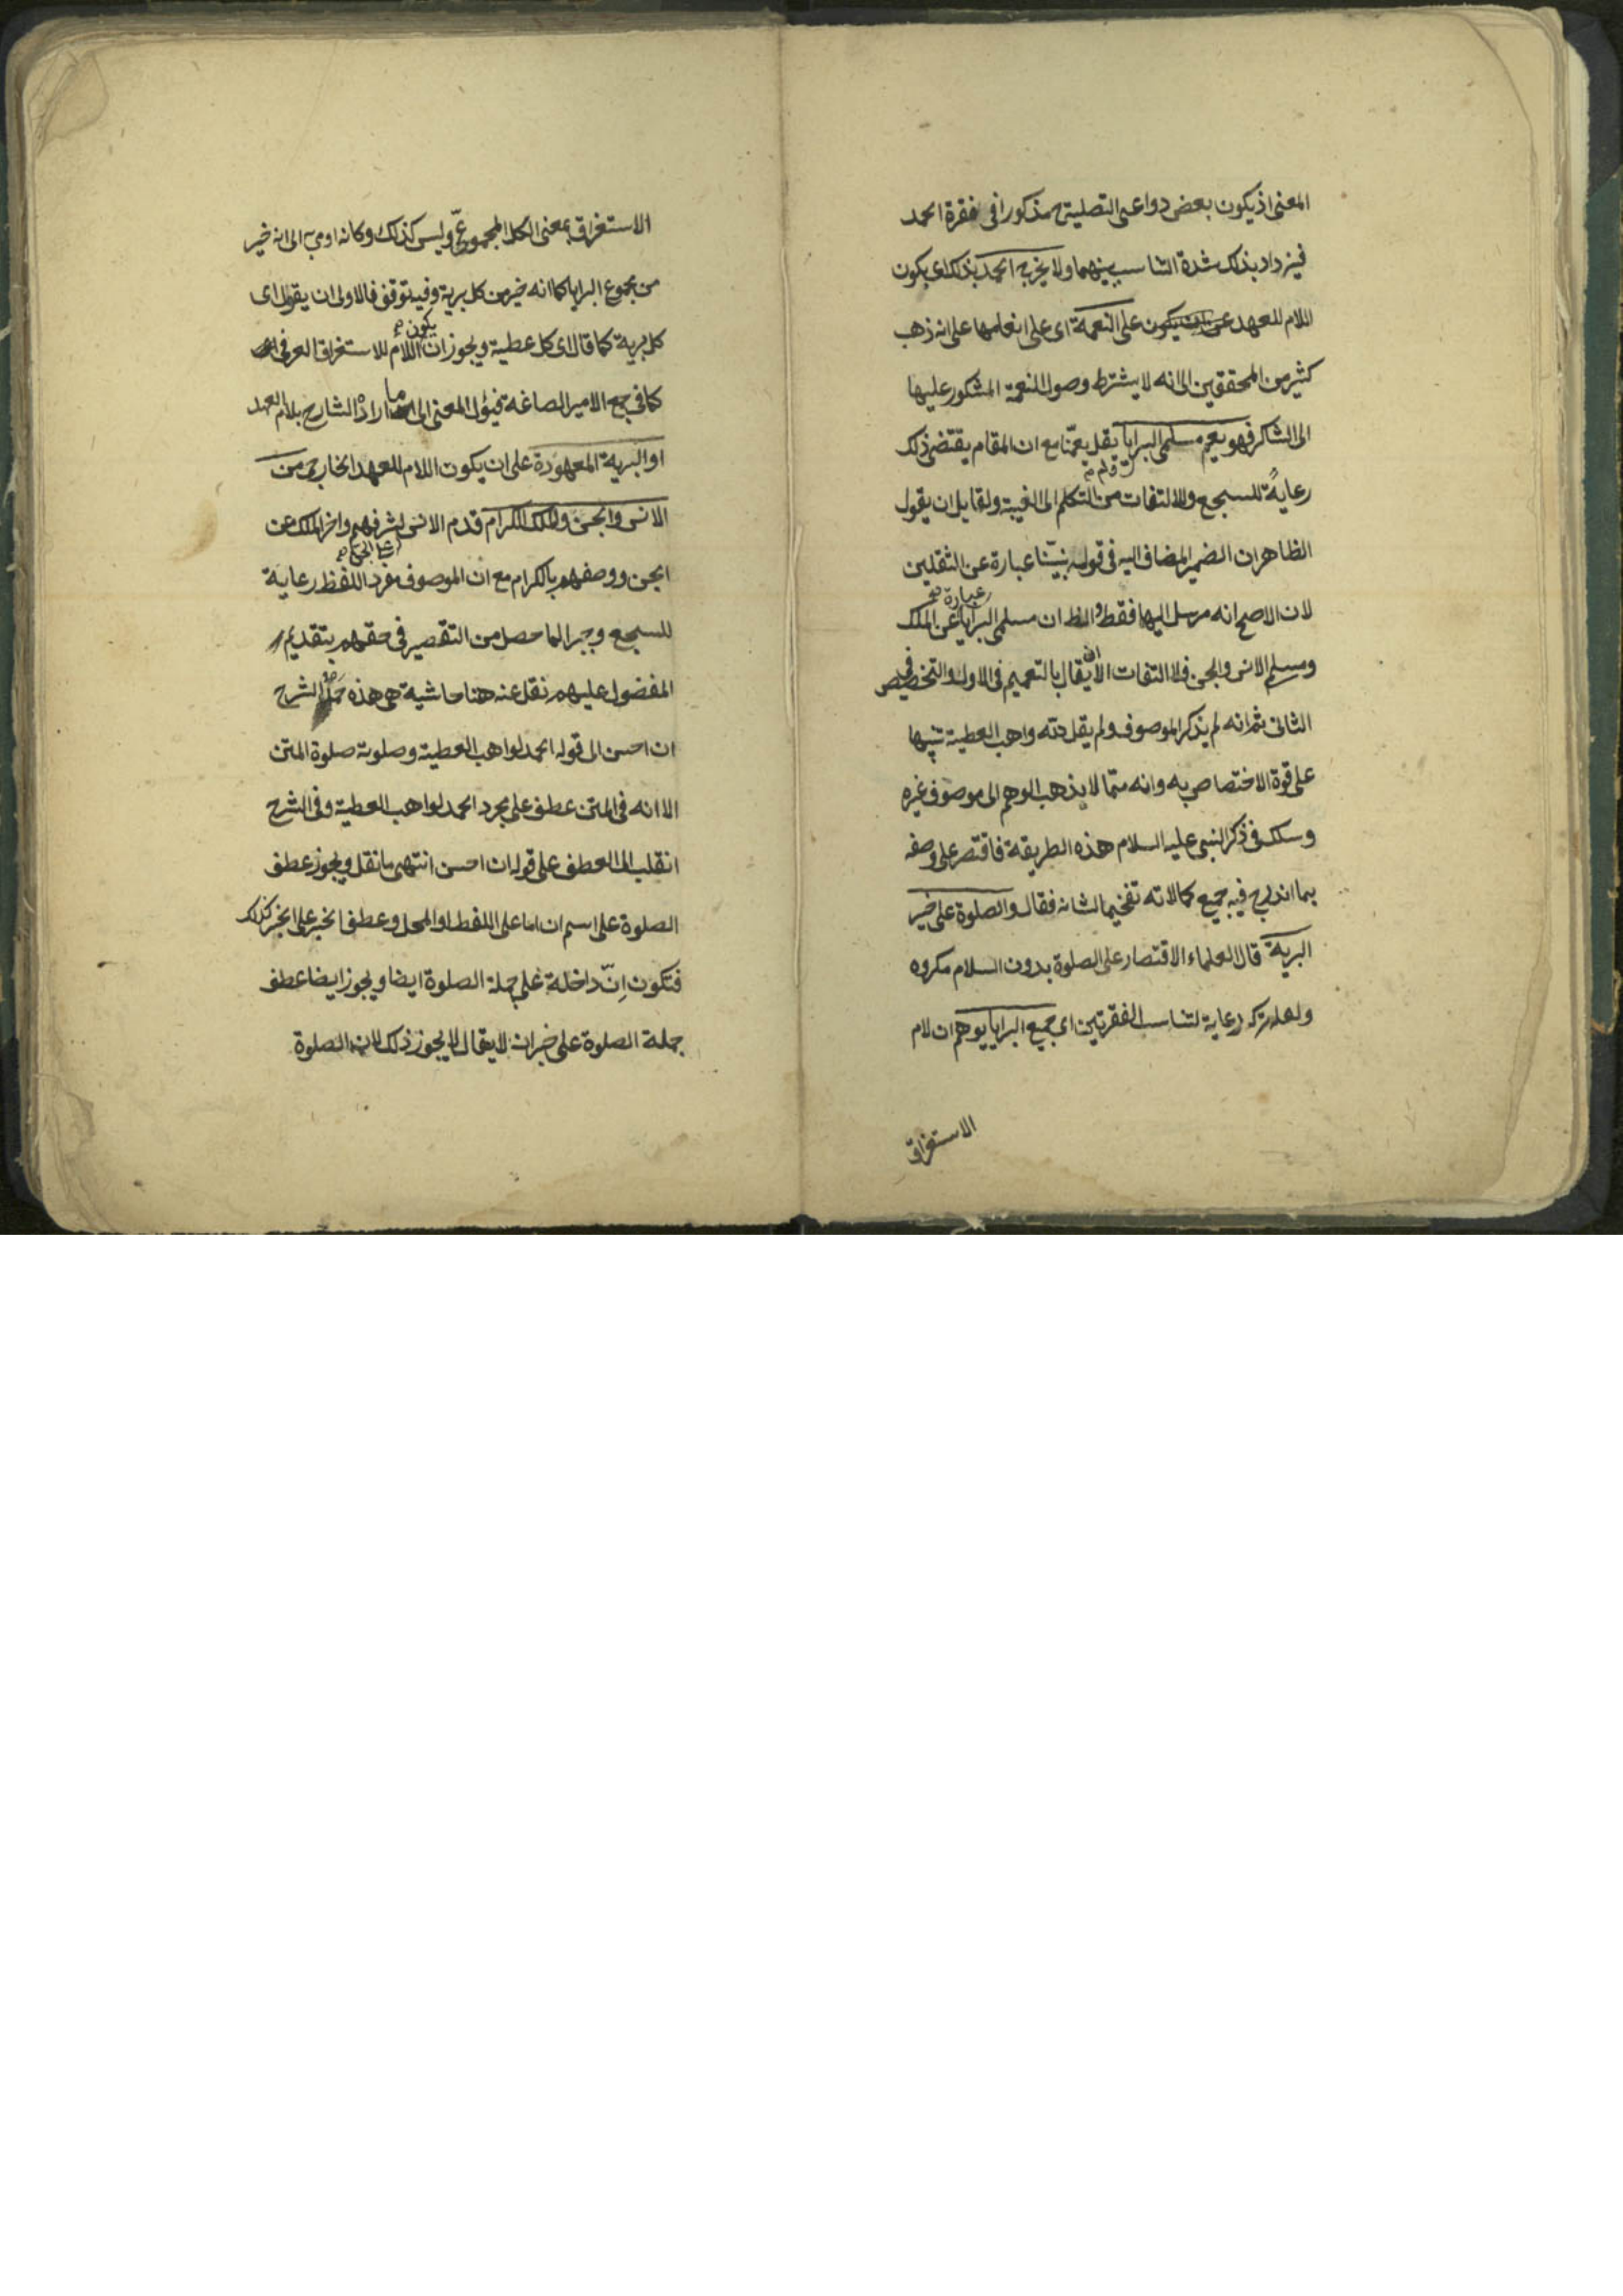 المعنى اذ يكون بعض دواعى التصلية مذكورا فى فقرة الحمد
فيزداد بذلك شدة التناسب بينهما ولا يخرج الحمد بذلك اى بكون
اللام للعهد عن ان يكون على النعمة اى على انعامها على انه ذهب
كثير من المحققين الى انه لا يشترط وصول النعمة المشكور عليها
الى الشاكر فهو يعم مسلمى البرايا يقل يعمنا مع ان المقام يقتضى ذلك
ولم
رعاية للسجع وللالتفات من التكلم الى الغيبة ولقايل ان يقول
الظاهر ان الضمير المضاف اليه فى قوله نبيّنا عبارة عن الثقلين
لان الاصح انه مرسل اليها فقط والظ ان مسلمى البرايا عن الملك
عبارة
ومسلم الانس والجن فلا التفات الا يقال بالتعميم فى الاول والتخصيص
ان
فى
الثانى ثم انه لم يذكر الموصوف ولم يقل واهب العطية تنبيها
على قوة الاختصاص به وانه متما لا يذهب الوهم الى موصوف غيره
وسلك فى ذكر النبى عليه السلام هذه الطريقة فاقتصر على وصفه
بما اندرج فيه جميع كمالاته تفخيما لشانه فقال والصلوة على خير
البرية قال العلماء الاقتصار على الصلوة بدون السلام مكروه
ولعله تركه رعاية لتناسب الفقرتين اى جميع البرايا يوهم ان لام
الاستغراق
الاستغراق بمعنى الكل المجموعىّ وليس كذلك وكانه اومى به الى انه خير
من مجموع البرايا كما انه خير من كل برية وفيه توقف فالاولى ان يقول اى
كل برية كما قال اى كل عطية ويجوز ان اللام للاستغراق العرفى
يكون
كما فى جمع الامير الصاغة فيؤل المعنى الى ما اراده الشارح بلام العهد
او البرية المعهودة على ان يكون اللام للعهد الخارجى من
الانس والجن والملك الكرام قدم الانس لشرفهم واخر الملك عن
الجن ووصفهم بالكرام مع ان الموصوف مفرد اللفظ رعاية
للسجع وجبرا لما حصل من التقصير فى حقهم بتقديم
المفضول عليهم نقل عنه هنا حاشية هى هذه حمد الشرح
ان احسن الى قوله الحمد لواهب العطية وصلوته صلوة المتن
الا انه فى المتن عطف على مجرد الحمد لواهب العطية وفى الشرح
انقلب الى العطف على قوله ان احسن انتهى ما نقل ويجوز عطف
الصلوة على اسم ان اما على اللفظ او المحل وعطف الخبر على الخبر كذلك
فتكون اِنّ داخلة على جملة الصلوة ايضا ويجوز ايضا عطف
جملة الصلوة على خبر ان لا يقال لا يجوز ذلك لان الصلوة